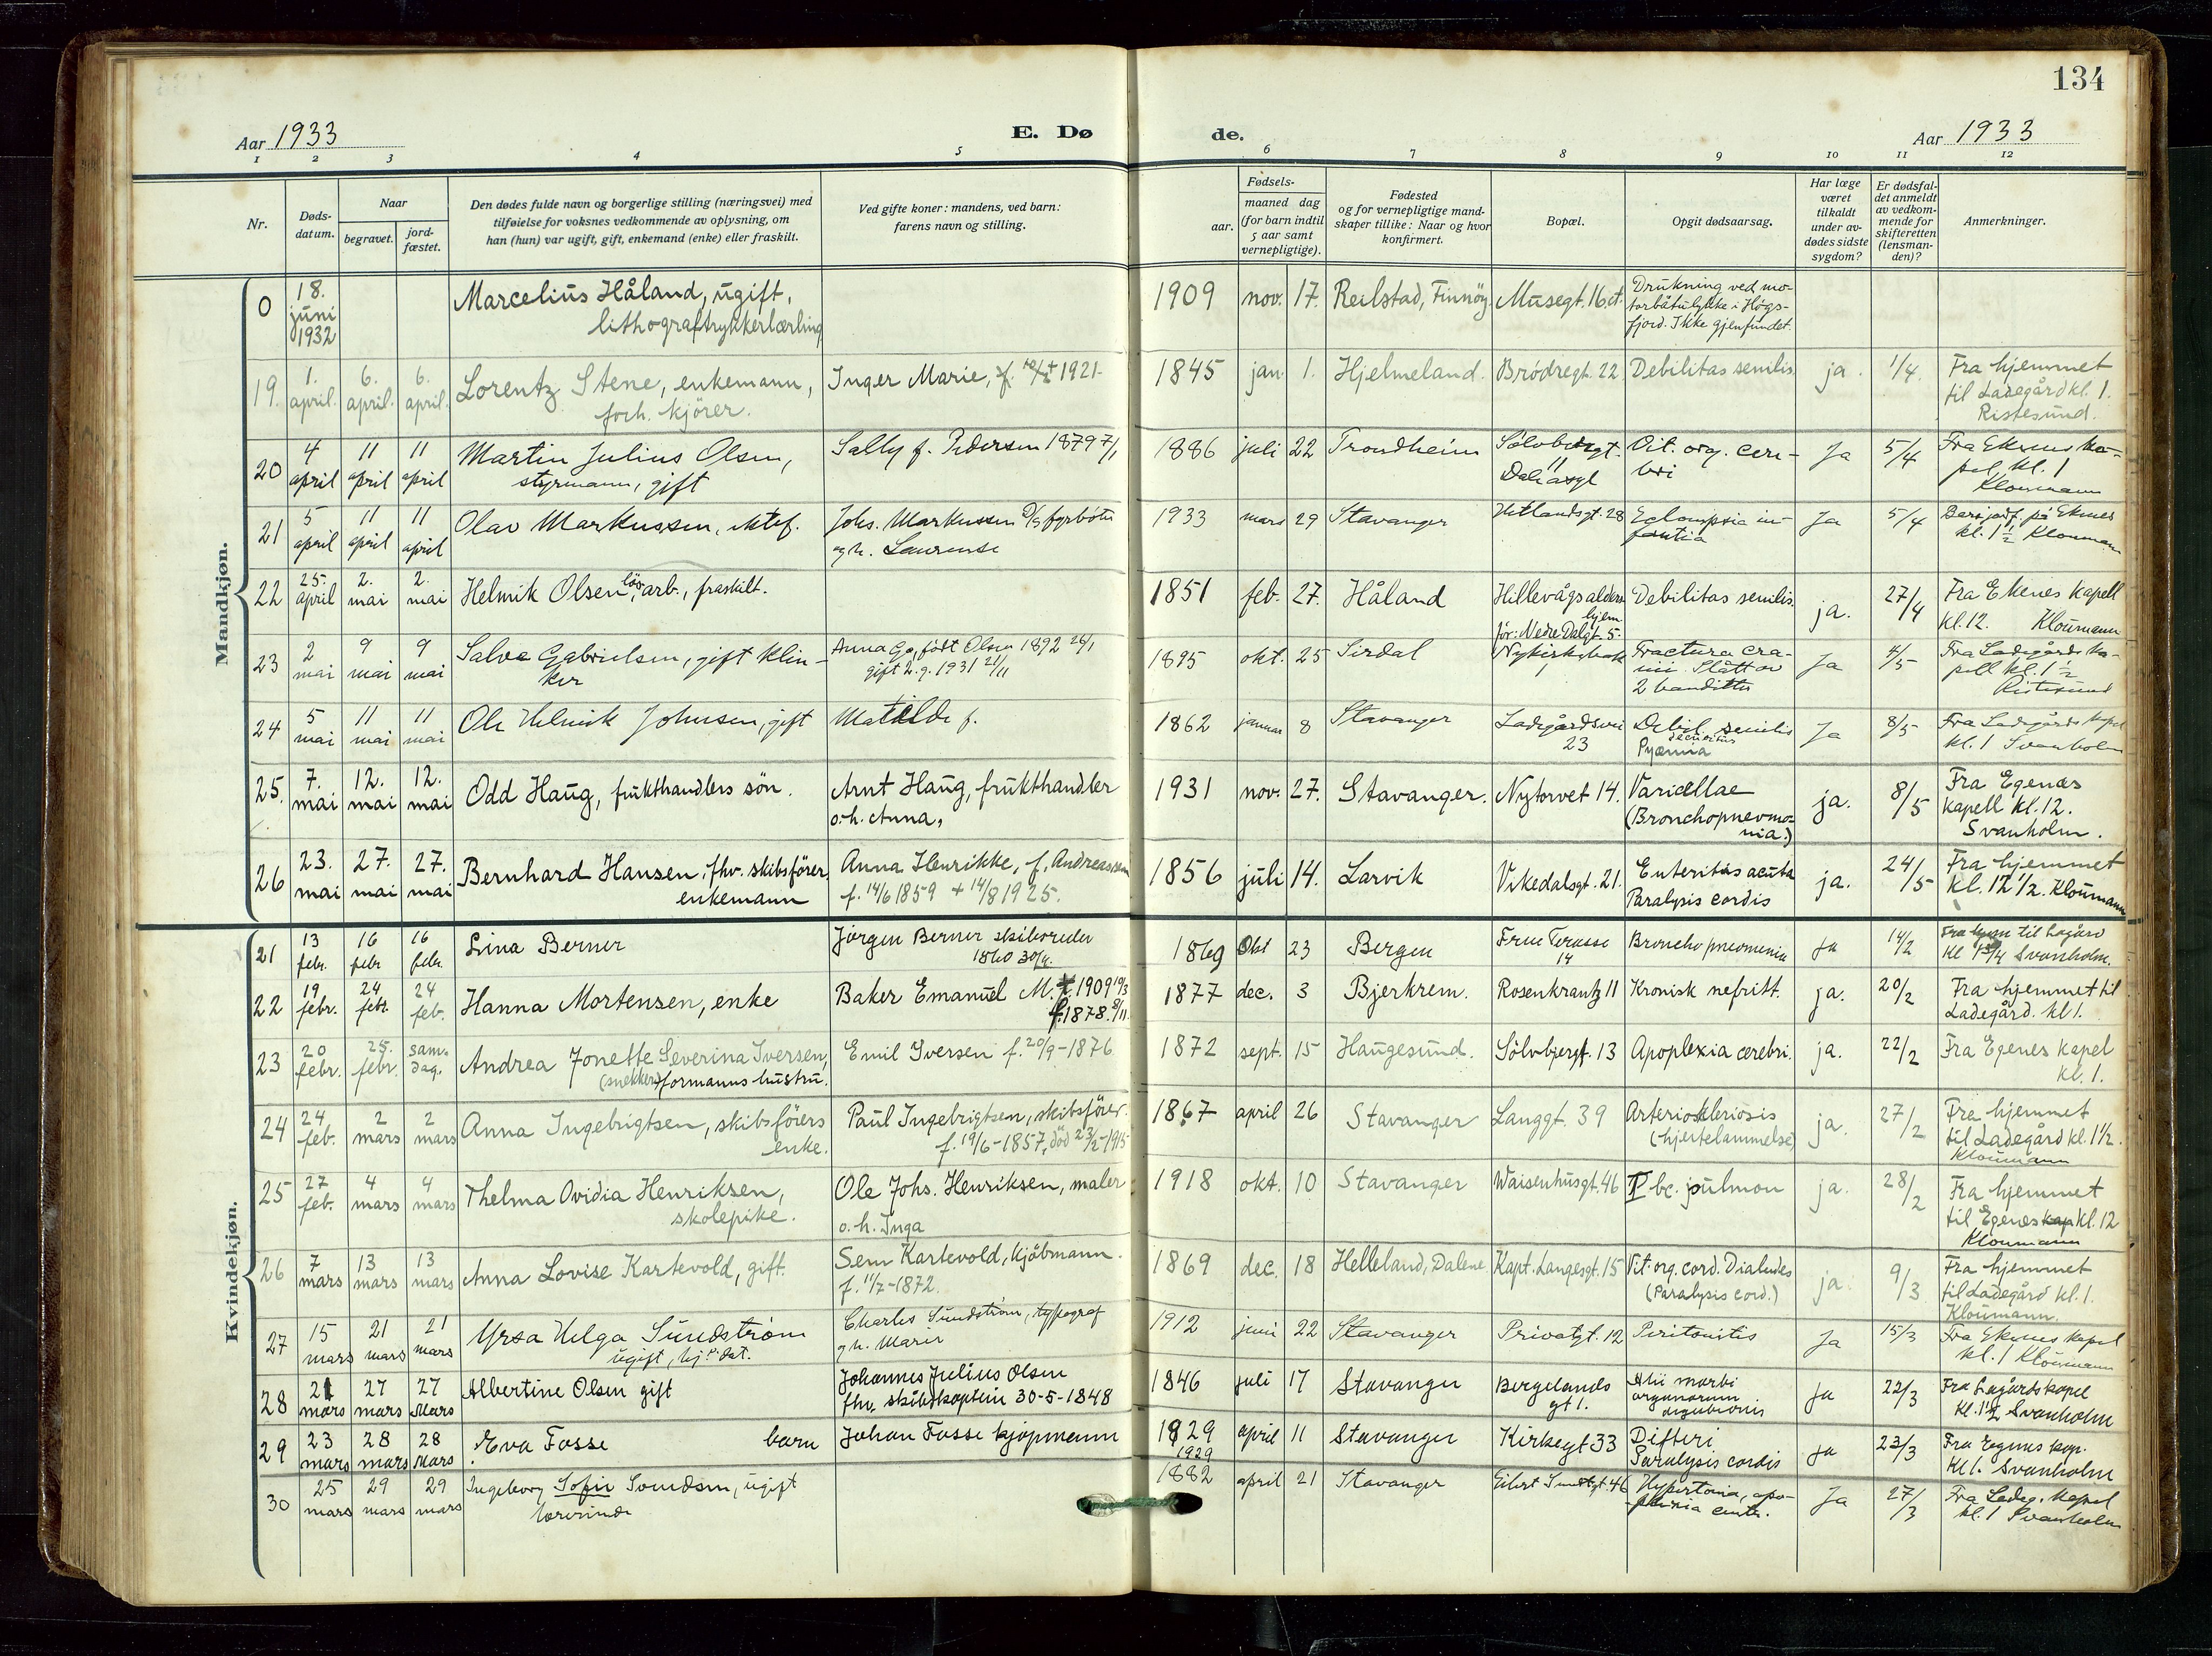 134
Aar 1933
E. Dø
de.
Aar 1933
1 2 3 4 5 6 7 8 9 10 11 12
Nr.
Døds-
datum.
Naar
begravet.
jord-
fæstet.
Den dødes fulde navn og borgerlige stilling (næringsvei) med
tilføielse for voksnes vedkommende av oplysning, om
han (hun) var ugift, gift, enkemand (enke) eller fraskilt.
Ved gifte koner: mandens, ved barn:
farens navn og stilling.
aar.
Fødsels-
maaned dag
(for barn indtil
5 aar samt
vernepligtige).
Fødested
og for vernepligtige mand-
skaper tillike: Naar og hvor
konfirmert.
Bopæl.
Opgit dødsaarsag.
Har læge
været
tilkaldt
under av-
dødes sidste
sygdom?
Er dødsfal-
det anmeldt
av vedkom-
mende for
skifteretten
(lensman-
den)?
Anmerkninger.
Mandkjøn.
0 18. juni 1932 Marcelius Håland, ugift,
lithograftrykkerlærling
1909 nov. 17. Reilstad, Finnöy Musegt. 16 Drukning ved mo-
torbåtulykke i Högs-
fjord. Ikke gjenfundet.
19. 1. april. 6. april. 6. april. Lorentz Stene, enkemann,
forh. kjörer.
Inger Marie, 1921
1845 jan. 1. Hjelmeland. Brödregt. 22 Debilitas senilis ja. 1/4. Fra hjemmet
til Ladegård kl. 1.
Ristesund.
20 4 april 11 april 11 april Martin Julius Olsen,
styrmann, gift
Sally f. Pedersen 1879 7/1
1886 juli 22 Trondheim Sölvbergt. 11 Vit. org. cere-
bri Ja 5/4 Fra Ekenes ka-
pel, kl. 1
Kloumann
21 5 april 11 april 11 april Olav Markussen,
Johs. Markussen fyrböter
og h. Laurense
1933 mars 29 Stavanger Hetlandsgt. 28 Eclampsia in-
fantia Ja 5/4 på Ekenes
kl. 1½ Kloumann
22 25. april 2. mai 2. mai Helmik Olsen, lös arb., fraskilt.
1851 feb. 27. Håland Hillevågs alders
hjem
för: Nedre Dalgt. 5. Debilitas senilis. ja. 27/4 Fra Ekenes kapell
kl. 12. Kloumann
23 2 mai 9 mai 9 mai Salve Gabrielsen, gift klin-
ker
Anna G. födt Olsen 1892 26/1
gift 2. g. 1931 21/11
1895 okt. 25 Sirdal Nykirkebak Fractura cra-
nii. Slått av
2 banditter Ja 4/5 Fra Ladegårds ka-
pell kl. 1½
Ristesund
24 5 mai 11 mai 11 mai Ole Helmik Johnsen, gift
Matilde f.
1862 januar 8 Stavanger Ladegårdsvei
23 Debil. senilis
Pyæmia Ja 8/5 Fra Ladegårds kapel
kl. 1 Svanholm
25. 7. mai 12. mai 12. mai Odd Haug, frukthandlers sön.
Arnt Haug, frukthandler
o. h. Anna,
1931 nov. 27. Stavanger. Nytorvet 14. Varicellae
(Bronchopnevmo-
nia.) ja. 8/5 Fra Egenæs
kapell kl. 12.
Svanholm.
26 23. mai 27. mai 27. mai Bernhard Hansen, fhv. skibsförer,
enkemann
Anna Henrikke, f. Andreassen
f. 14/6 1859 + 14/8 1925.
1856 juli 14. Larvik Vikedalsgt. 21. Enteritis acuta
Paralysis cordis ja. 24/5 Fra hjemmet
kl. 12½. Kloumann
Kvindekjøn.
21 13 febr. 16 febr 16 febr. Lina Berner
Jörgen Berner skibsreder
1860 30/4.
1869 Okt 23 Bergen Frue Terasse
14 Bronchopneomonia Ja 14/2 Fra hjem til Lagård
Svanholm.
22 19 febr. 24 febr. 24 feb. Hanna Mortensen, enke
Baker Emanuel M. 1909 19/3
f. 1878. 8/11
1877 dec. 3 Bjerkrem. Rosenkrantz 11 Kronisk nefritt. ja. 20/2 Fra hjemmet til
Ladegård. kl 1.
23 20 febr. 25. febr. sam. dag. Andrea Jonette Severina Iversen,
(snekker) formanns hustru.
Emil Iversen f. 20/9-1876
1872 sept. 15 Haugesund. Sölvbjergt. 13 Apoplexia cerebri. ja. 22/2 Fra Egenes kapel
kl. 1.
24 24 feb. 2 mars 2 mars Anna Ingebrigtsen, skibsförers
enke.
Paul Ingebrigtsen, skibsförer.
f. 19/6-1857, död 23/2-1915
1867 april 26 Stavanger Langgt. 39 Arterioskleriosis
(hjertelammelse) ja. 27/2 Fra hjemmet
til Ladegård kl. 1½.
Kloumann
25 27 feb. 4 mars 4 mars Thelma Ovidia Henriksen,
skolepike.
Ole Johs. Henriksen, maler
o. h. Inga
1918 okt. 10 Stavanger Waisenhusgt. 46 Tbc. pulmon ja. 28/2 Fra hjemmet
til Egenes kap kl. 12
Kloumann
26 7 mars 13 mars 13 mars Anna Lovise Kartevold, gift.
Sem Kartevold, kjöbmann.
f. 11/7-1872.
1869 dec. 18 Helleland, Dalene Kapt. Langesgt. 15 Vit. org. cord.
(Paralysis cord.) ja. 9/3 Fra hjemmet
til Ladegård kl. 1.
Kloumann.
27 15 mars 21 mars 21 mars Yrsa Helga Sundström
ugift, hj. dat.
Charles Sundström, typograf
og h. Marie
1912 juni 22 Stavanger Privatgt. 12 Peritonitis Ja 15/3 Fra Ekenes kapel
kl. 1 Kloumann
28 21 mars 27 mars 27 Mars Albertine Olsen gift
Johannes Julius Olsen
fhv. skibskaptein 30-5-1848
1846 juli 17 Stavanger Bergelands
gt 1. Alii morbi
organorum
digestionis Ja 22/3 Fra Lagårdskapel
kl. 1½ Svanholm
29 23 mars 28 mars 28 Mars Eva Fosse barn
Johan Fosse kjöpmann
1929
1929 april 11 Stavanger Kirkegt 33 Difteri
Paralysis cordis Ja 23/3 Fra Egenes kap.
Kl 1. Svanholm
30 25 mars 29 mars 29 mars Ingeborg Sofie Svendsen, ugift
lærerinde
1882 april 21 Stavanger Eilert Sundtgt. 46 Hypertonia, apo-
plexia cerebr. Ja 27/3 Fra Ladeg. kapel
kl. 1 Svanholm